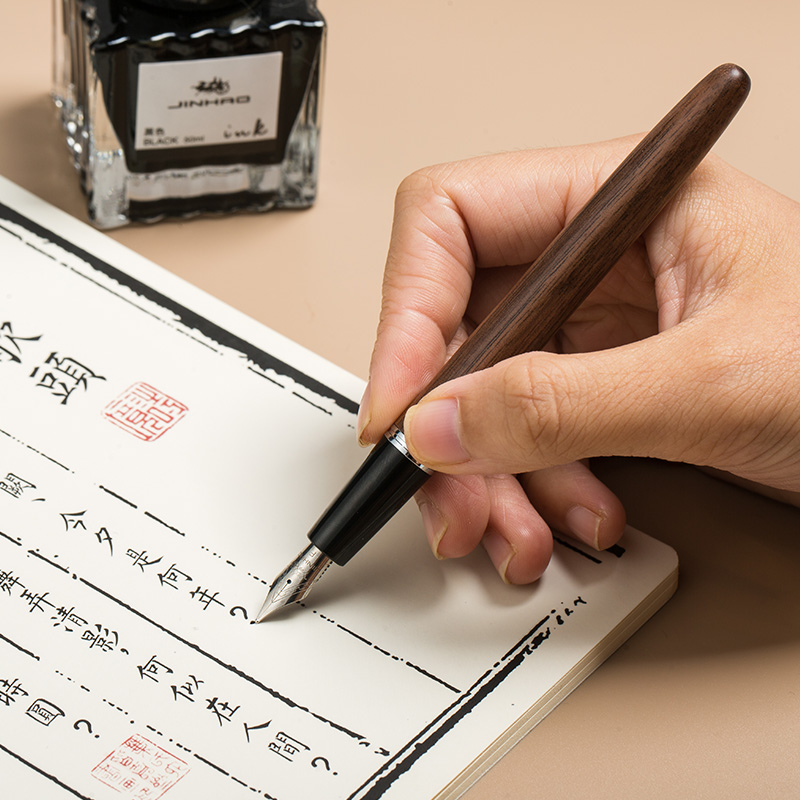 JINHAO
黑色
BLACK
ink
歌頭
闕,今夕是何年?
舞弄清影,何似在人間?
時圓?